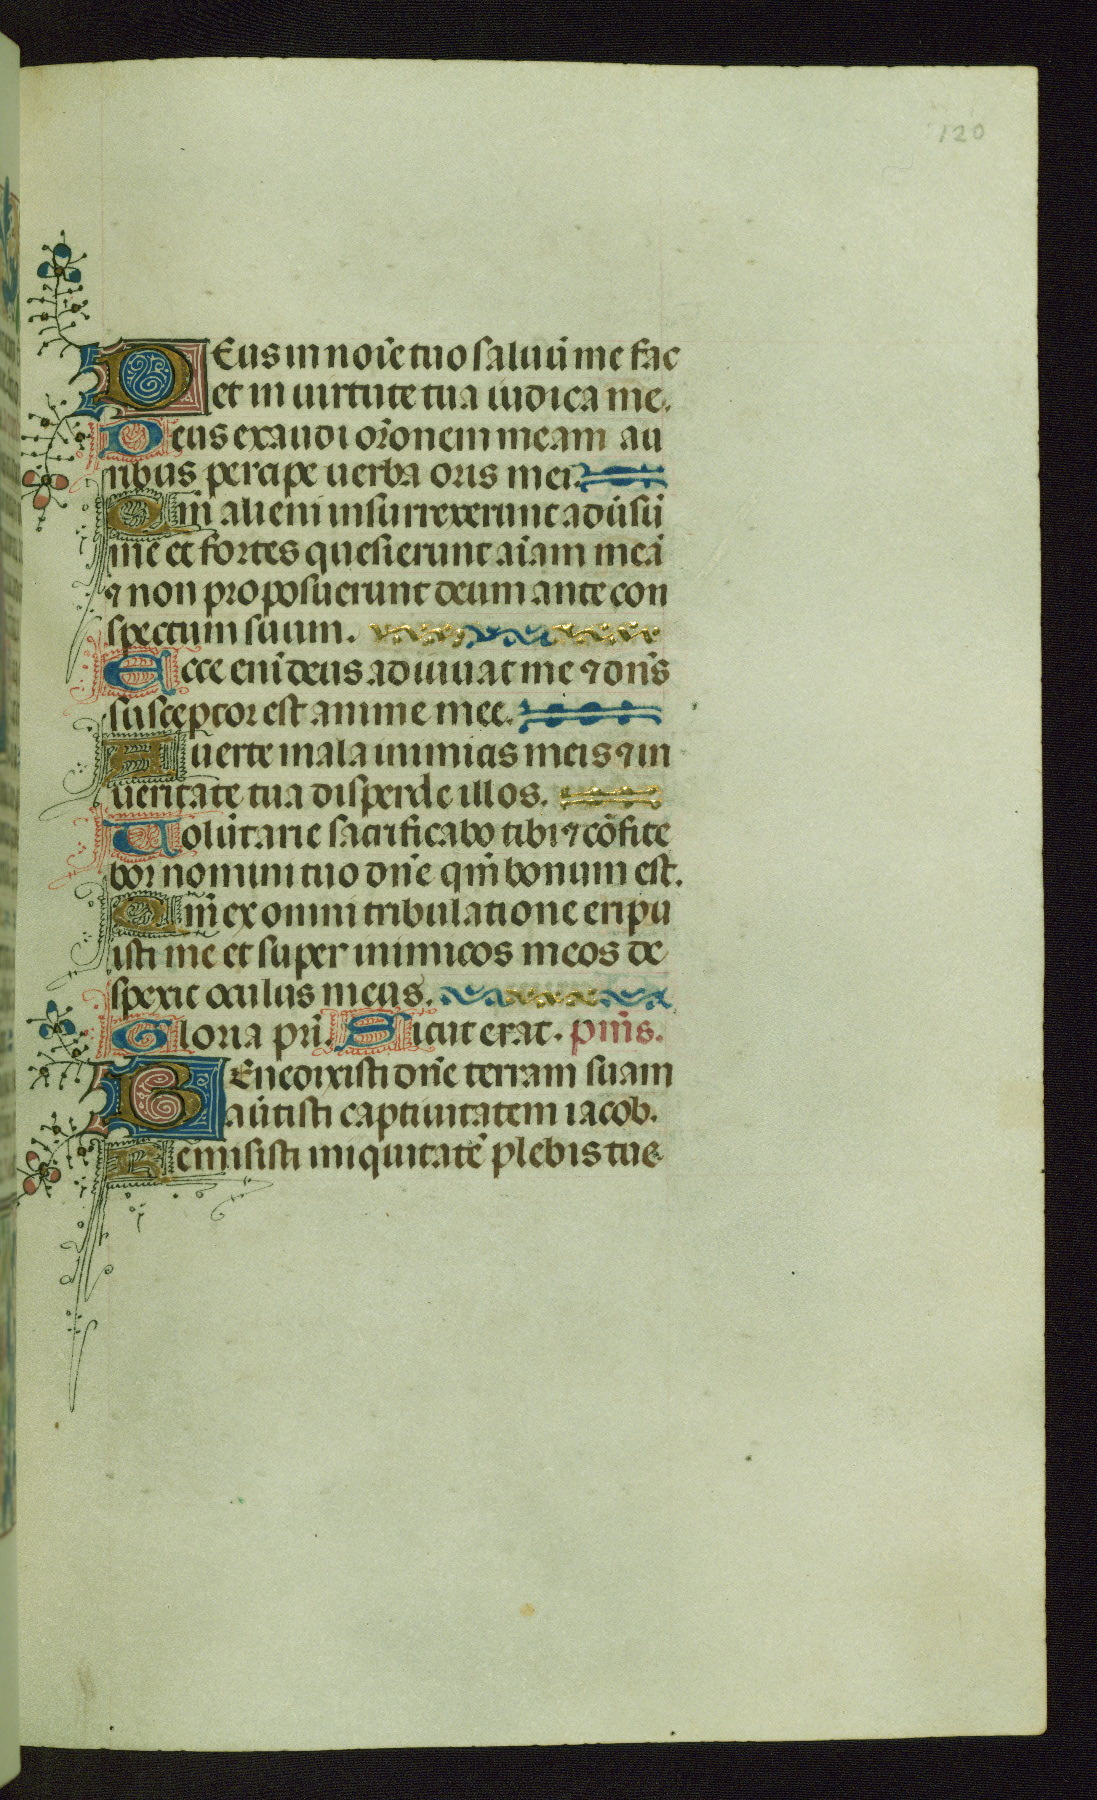 120
DEus in noi͂e tuo saluu͂ me fac
et in uirtute tua iudica me.
Deus exaudi or͂onem meam au
ribus percipe uerba oris mei.
Qm͂ alieni insurrexerunt adu͂su͂
me et fortes quesierunt ai͂am mea͂
⁊ non proposuerunt deum ante con
spectum suum.
Ecce eni͂ deus adiuuat me ⁊ dn͂s
susceptor est anime mee.
Auerte mala inimicis meis ⁊ in
ueritate tua disperde illos.
Uolu͂tarie sacrificabo tibi ⁊ co͂fite
bor nomini tuo dn͂e qm͂ bonum est.
Qm͂ ex omni tribulatione eripu
isti me et super inimicos meos de
spexit oculus meus.
Gloria pri͂. Sicut erat. pm͂s.
BEnedixisti dn͂e terram suam
au͂tisti captiuitatem iacob.
Remisisti iniquitate͂ plebis tue